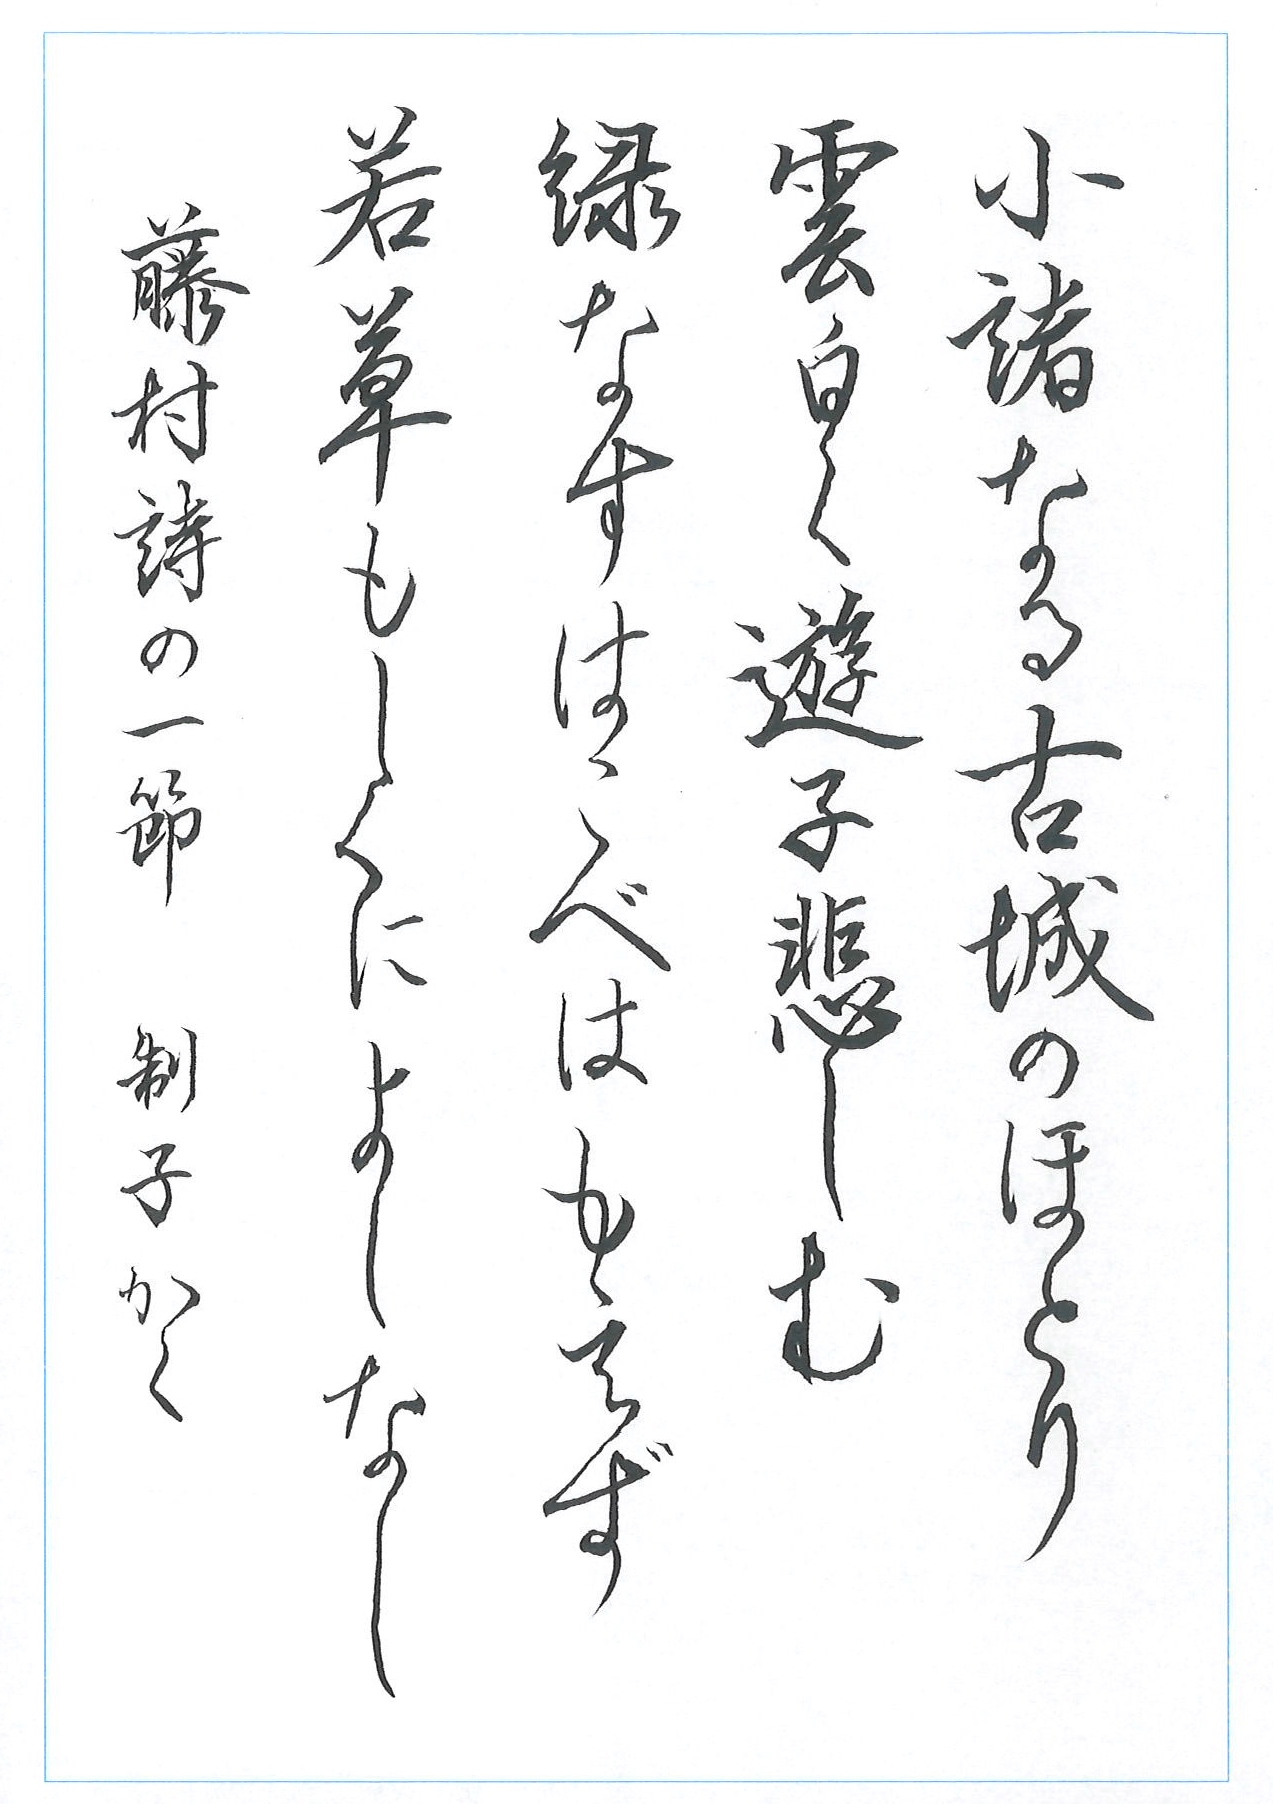 小諸なる古城のほとり
雲白く遊子悲しむ
緑なすはこべはもえず
若草もしくによしなし
藤村詩の一節　制子かく